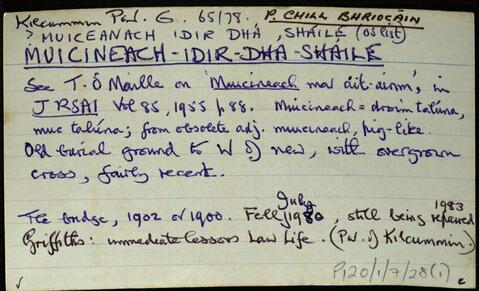 Kilcummin Par. G. 65/78. P. CHILL BHRIOCÁIN
> MUICEANACH IDIR DHÁ SHÁILE (OS list)
MUICINEACH-IDIR-DHA-SHÁILE
See T. Ó Máille on 'Muicineach mar áit-ainm', in
JRSAI Vol 85, 1955 p. 88. Muicineach = droim talúna,
muc talúna; from obsolete adj. muicineach, pig-like.
Old burial ground to W of new, with overgrown
cross, fairly recent.
July
1983
The bridge, 1902 or 1900. Fell 1980, still being repaired
Griffiths: immediate lessors Law Life. (Par. of Kilcummin.)
P120/1/7/28(1)